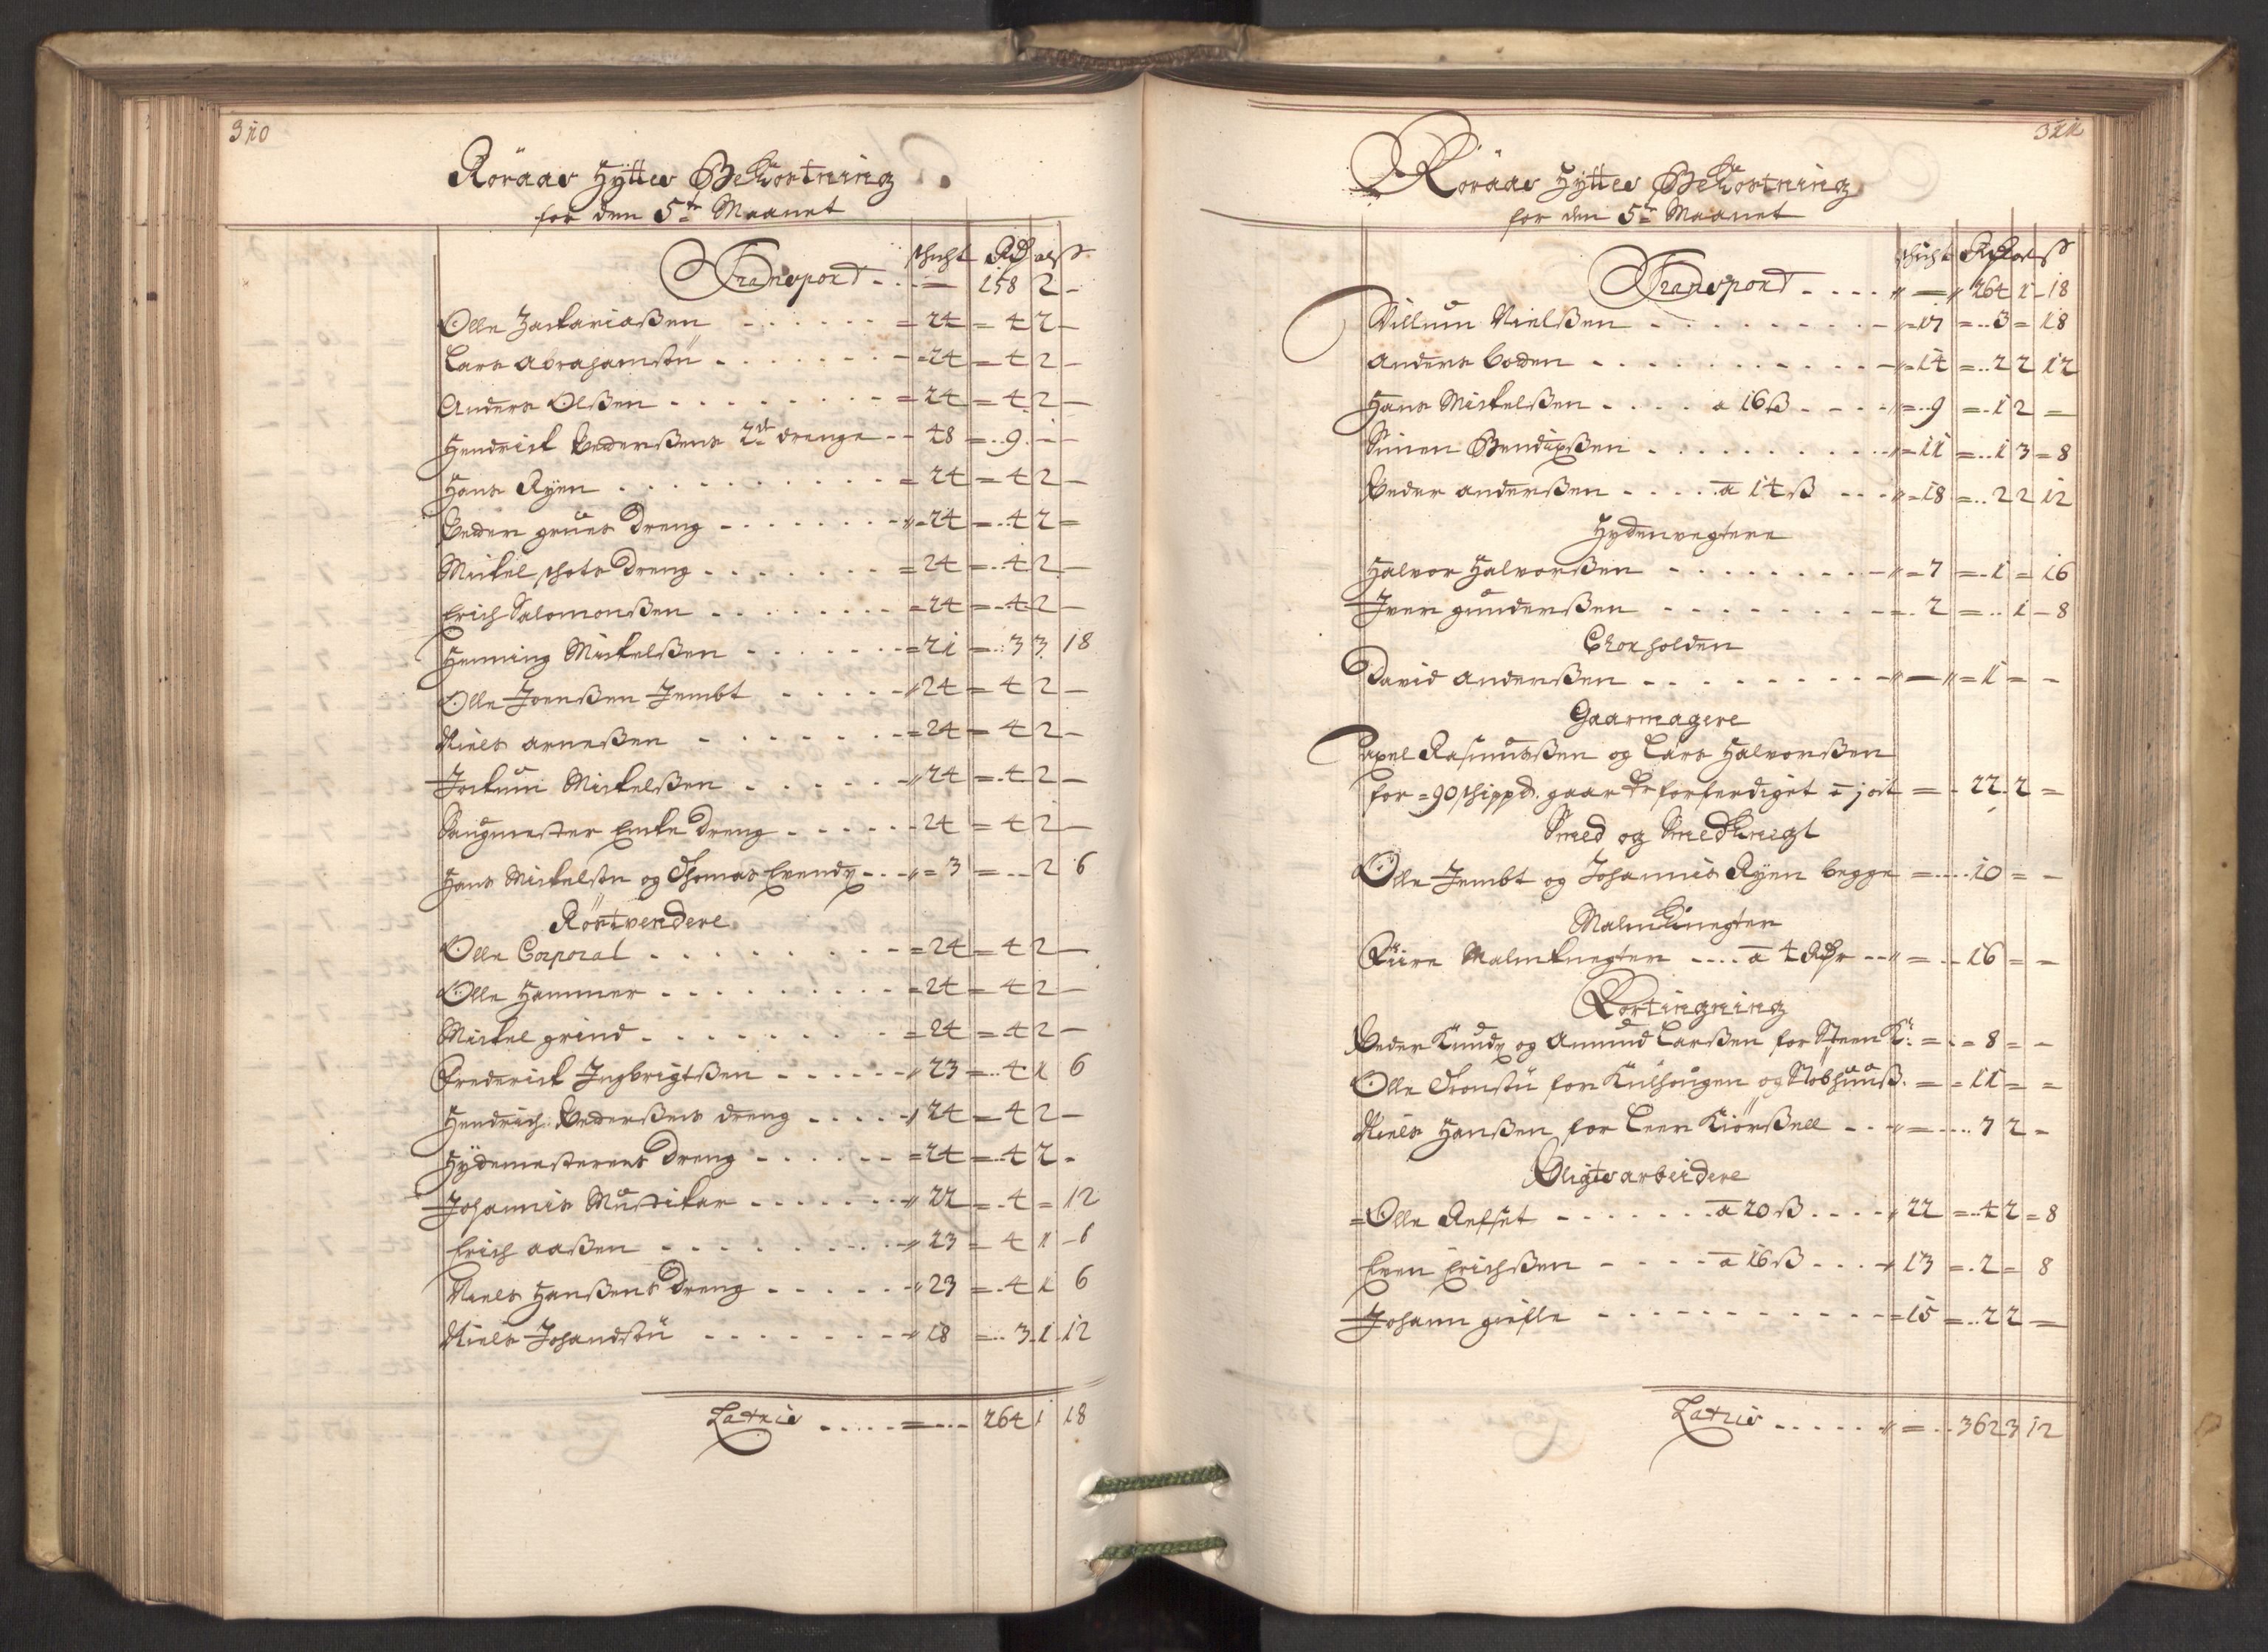 310
Röraas Hÿttes Bekostning
for den 5te Maanet
schicht Rdr ort ß
Transport - - - — 158 2 -
Olle Zackariaßen - - - - - - = 24 = 4 2 -
Lars Abrahamsen - - - - - - - 24 = 4 2 -
Anders Olßen - - - - - - - = 24 = 4 2 -
Hendrick Pederßens 2de drenge - - 48 = 9 - -
Hans Rÿen - - - - - - - = 24 = 4 2 -
Peder grues Dreng - - - - - - - 24 = 4 2 =
Mickel schots Dreng - - - - - - = 24 = 4 2 -
Erich Salomonßen - - - - - - = 24 = 4 2 -
Henning Mickelßen - - - - - - = 21 = 3 3 18
Olle Joenßen Jembt - - - - - " 24 = 4 2 -
Niels arneßen - - - - - - = 24 = 4 2 -
Jockum Mickelßen - - - - - " 24 = 4 2 -
Saugmester Encke Dreng - - - - - 24 = 4 2 -
Hans Mickelsen og Thomas Evendz - - " = 3 = - - 2 6
Röstvendere
Olle Corporal - - - - - - - = 24 = 4 2 -
Olle Hammer - - - - - - - = 24 = 4 2 -
Mickel grind - - - - - - - = 24 = 4 2 -
Frederick Ingbrigtßen - - - - - - " 23 = 4 1 6
Hendrich Pederßens dreng - - - - " 24 = 4 2 -
Hÿdemesterens Dreng - - - - - = 24 = 4 2 -
Johannis Mußikar - - - - - - " 22 = 4 = 12
Erich aaßen - - - - - - - " 23 = 4 1 - 6
Niels Hanßens Dreng - - - - - " 23 = 4 1 6
Niels Johandsen - - - - - - - " 18 = 3 1 12
Latris - - - - = - - - 264 1 18
311
Röraas Hÿttes Bekostning
for den 5te Maanet
schicht Rdr ort ß
Transport - - - - " — " 264 1 - 18
Villum Nielßen - - - - - - - - " = 17 = 3 = 18
Anders Boden - - - - - - - - - " = 14 = 2 2 12
Hans Mickelßen - - - - a 16 ß - - - - " = 9 = 1 2 =
Simen Bendixßen - - - - - - - - " = 11 = 1 3 = 8
Peder anderßen - - - - a 14 ß - - - " = 18 = 2 2 12
Hydenvegtere
Halvor Halvorßen - - - - - - - " = 7 = 1 = 16
Iver gunderßen - - - - - - - - = 2 = 1 - 8
Chorholden
David anderßen - - - - - - - - " — " = 1 = -
Gaarmagere
axel Rasmusßen og Lars Halvorßen
for = 90 schippd. gaar forferdiget a 1 ort = - 22 2 =
Smed og Smedknegt
Olle Jembt og Johannis Rÿen begge = - - - 10 = -
Malmknegter
Fiire Malmknegter - - - - a 4 Rdr - - " = - - 16 = -
Fortingning
Peder Kundz og Amund Larßen for Steen K: = - = 8 = -
Olle Tronsen for Kulhougen og Stobhuuß. = - 11 = =
Niels Hanßen for Leer Kiörßell - - " = - - - 7 2 -
Pligtsarbeidere
Olle Refset - - - - - - - a 20 ß - - - - " 22 = 4 2 = 8
Even Erichßen - - - - a 16 ß - - - " 13 = 2 = 8
Johann giesle - - - - - - - - - - = 15 = 2 2 =
Latris - - - - - - " = - - 362 3 12